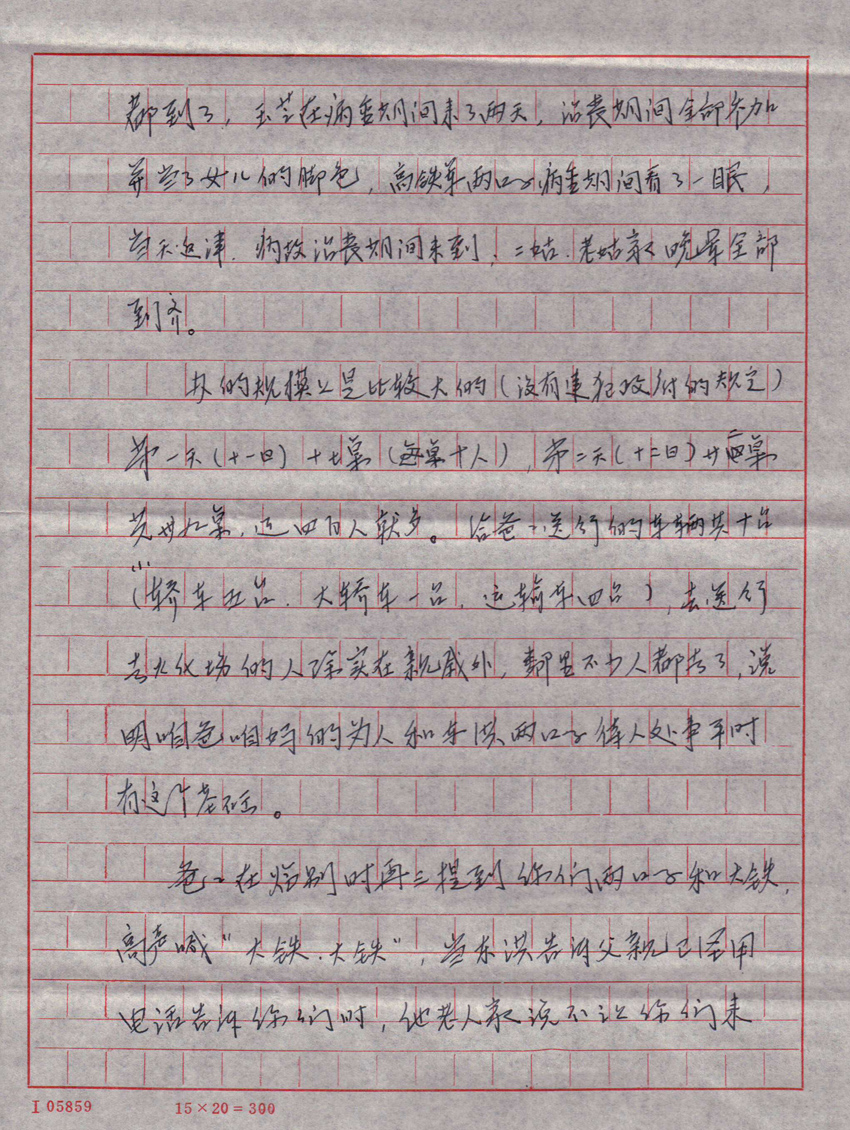 都到了，玉芝在病重期间来了两天，治丧期间全部参加
并当了女儿的脚色，高铁军两口子病重期间看了一眼，
当天返津，病故治丧期间未到，二姑、老姑家晚辈全部
到齐。
办的规模也是比较大的（没有违犯政府的规定）
第一天（十一日）十七桌（每桌十人），第二天（十二日）廿二桌
共卅九桌，近四百人就多。给爸〻送行的车辆共十台
（小轿车五台、大轿车一台，运输车四台），去送行
去火化场的人除实在亲戚外，郭里不少人都去了，说
明咱爸咱妈的为人和东洪两口子侍人处事平时
有这个基础。
爸〻在临别时再三提到你们两口子和大铁，
高声喊“大铁、大铁”，当东洪告诉父亲已经用
电话告诉你们时，他老人家说不让你们来
I 05859
15×20=300